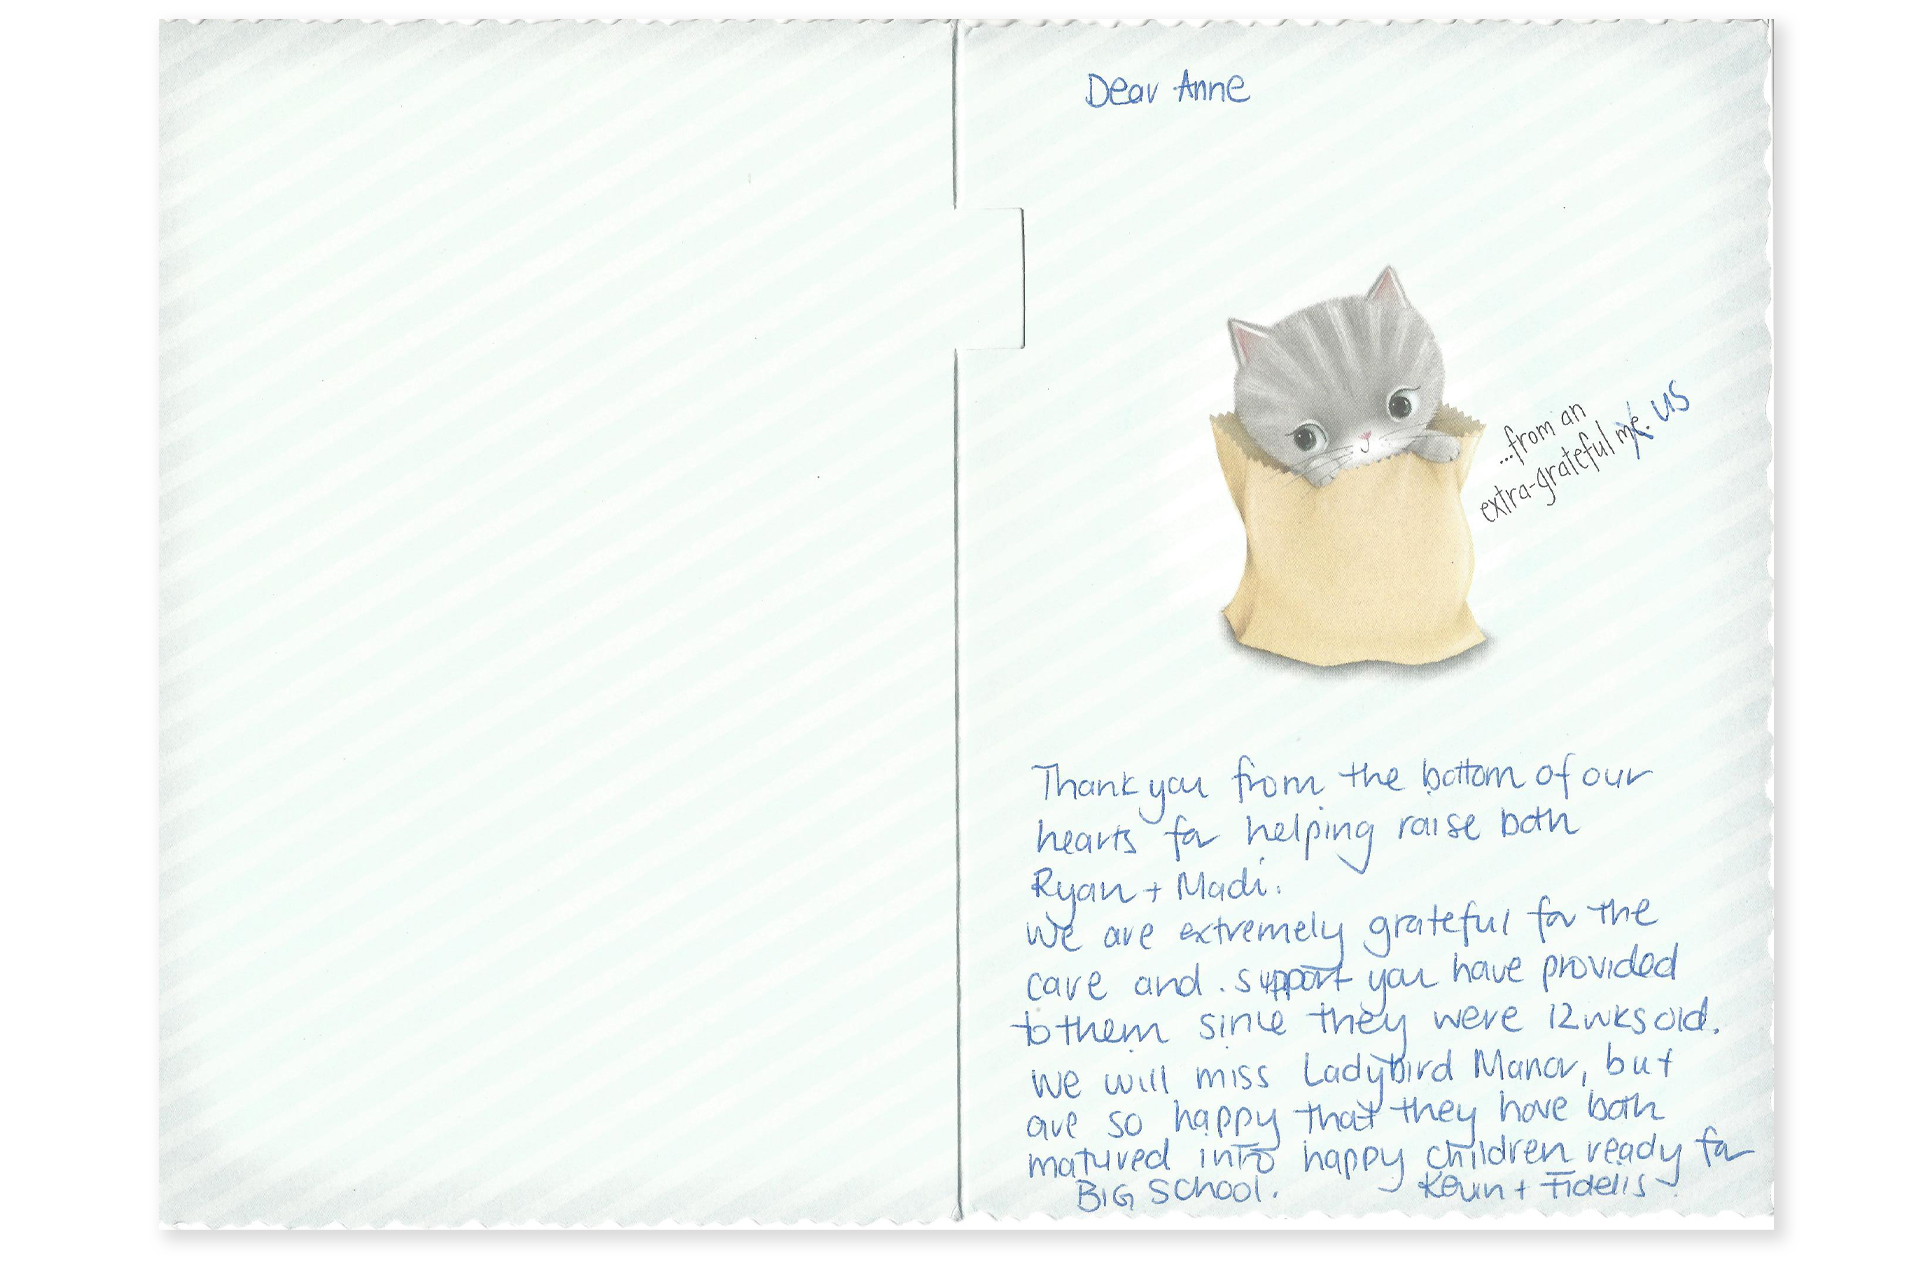 Dear Anne
...from an
extra-grateful me. us
Thank you from the bottom of our
hearts for helping raise both
Ryan + Madi.
We are extremely grateful for the
care and support you have provided
to them since they were 12wks old.
We will miss Ladybird Manor, but
are so happy that they have both
matured into happy children ready for
BIG SCHOOL. Kevin + Fidelis